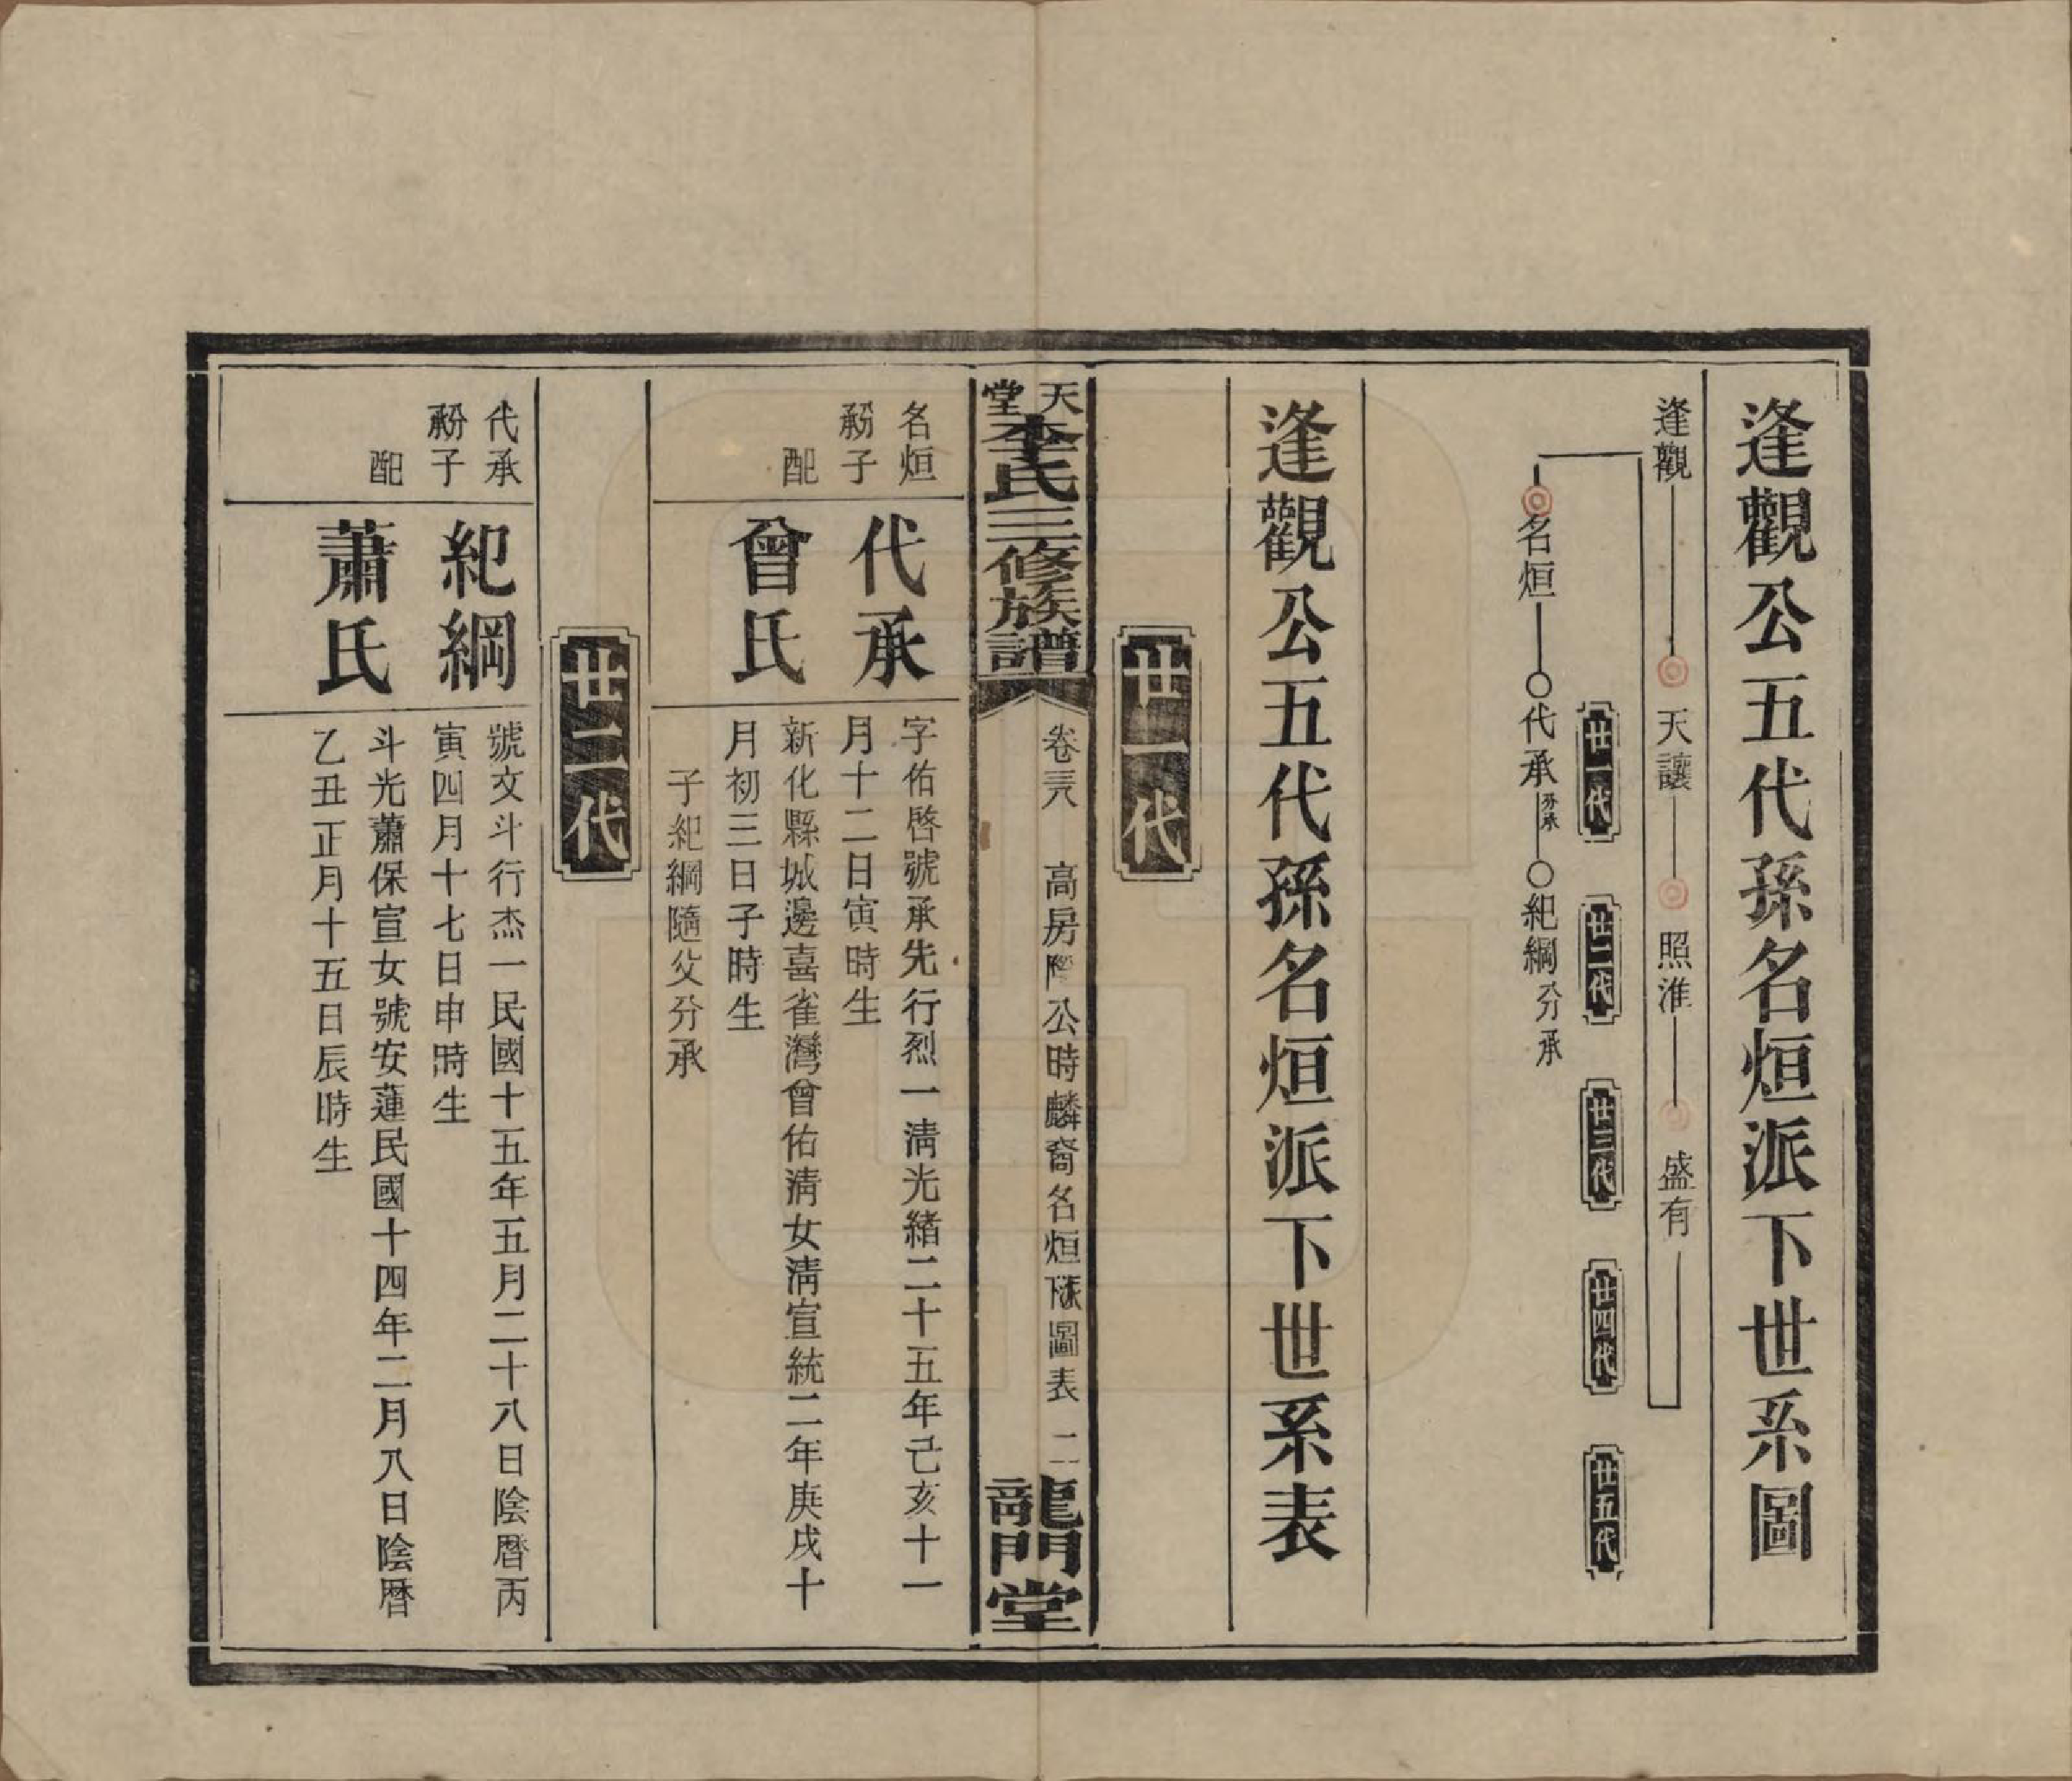 逢觀公五代孫名烜派下世系圖
逢觀
天讓
照淮
盛有
廿一代
廿二代
廿三代
廿四代
廿五代
名烜
代承
兼承
紀綱
分承
逢觀公五代孫名烜派下世系表
廿一代
天堂李氏三修族譜
卷三八
高房
公時麟裔名烜派下圖表
二
龍門堂
名烜
子
代承
字佑啓號承先行烈一淸光緒二十五年己亥十一
月十二日寅時生
配
曾氏
新化縣城邊喜雀灣曾佑淸女淸宣統二年庚戌十
月初三日子時生
子紀綱隨父分承
廿二代
代承
子
紀綱
號文斗行杰一民國十五年五月二十八日陰曆丙
寅四月十七日申時生
配
蕭氏
斗光蕭保宣女號安蓮民國十四年二月八日陰曆
乙丑正月十五日辰時生